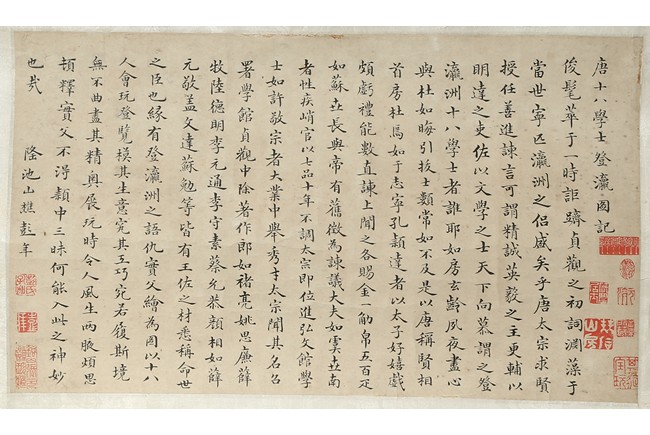 唐十八學士登瀛圖記
俊髦萃于一時詎躋貞觀之初詞淵藻于
當世寧匹瀛洲之侶盛矣乎唐太宗求賢
授任善進諫言可謂精誠英毅之主更輔以
明達之吏佐以文學之士天下向慕謂之登
瀛洲十八學士者誰耶如房玄齡夙夜盡心
與杜如晦引拔士類常如不及是以唐稱賢相
首房杜焉如于志寧孔頴達者以太子好嬉戲
頗虧禮能數直諫上聞之各賜金一觔帛五百疋
如蘇世長與帝有舊徵為諫議大夫如虞世南
者性疾峭官以七品十年不調太宗即位進弘文館學
士如許敬宗者大業中舉秀才太宗聞其名召
署學館貞觀中除著作郎如褚亮姚思廉薛
牧陸德明李元通李守素蔡允恭顔相如薛
元敬盖文達蘇勉等皆有王佐之材悉稱命世
之臣也緣有登瀛洲之語仇實父繪為圖以十八
人會玩登覽模其生意究其工巧宛若復斯境
無不曲盡其精奥展玩時令人風生兩腋煩思
頓釋實父不淂頴中三昧何能入此之神妙
也哉
隆池山樵彭年